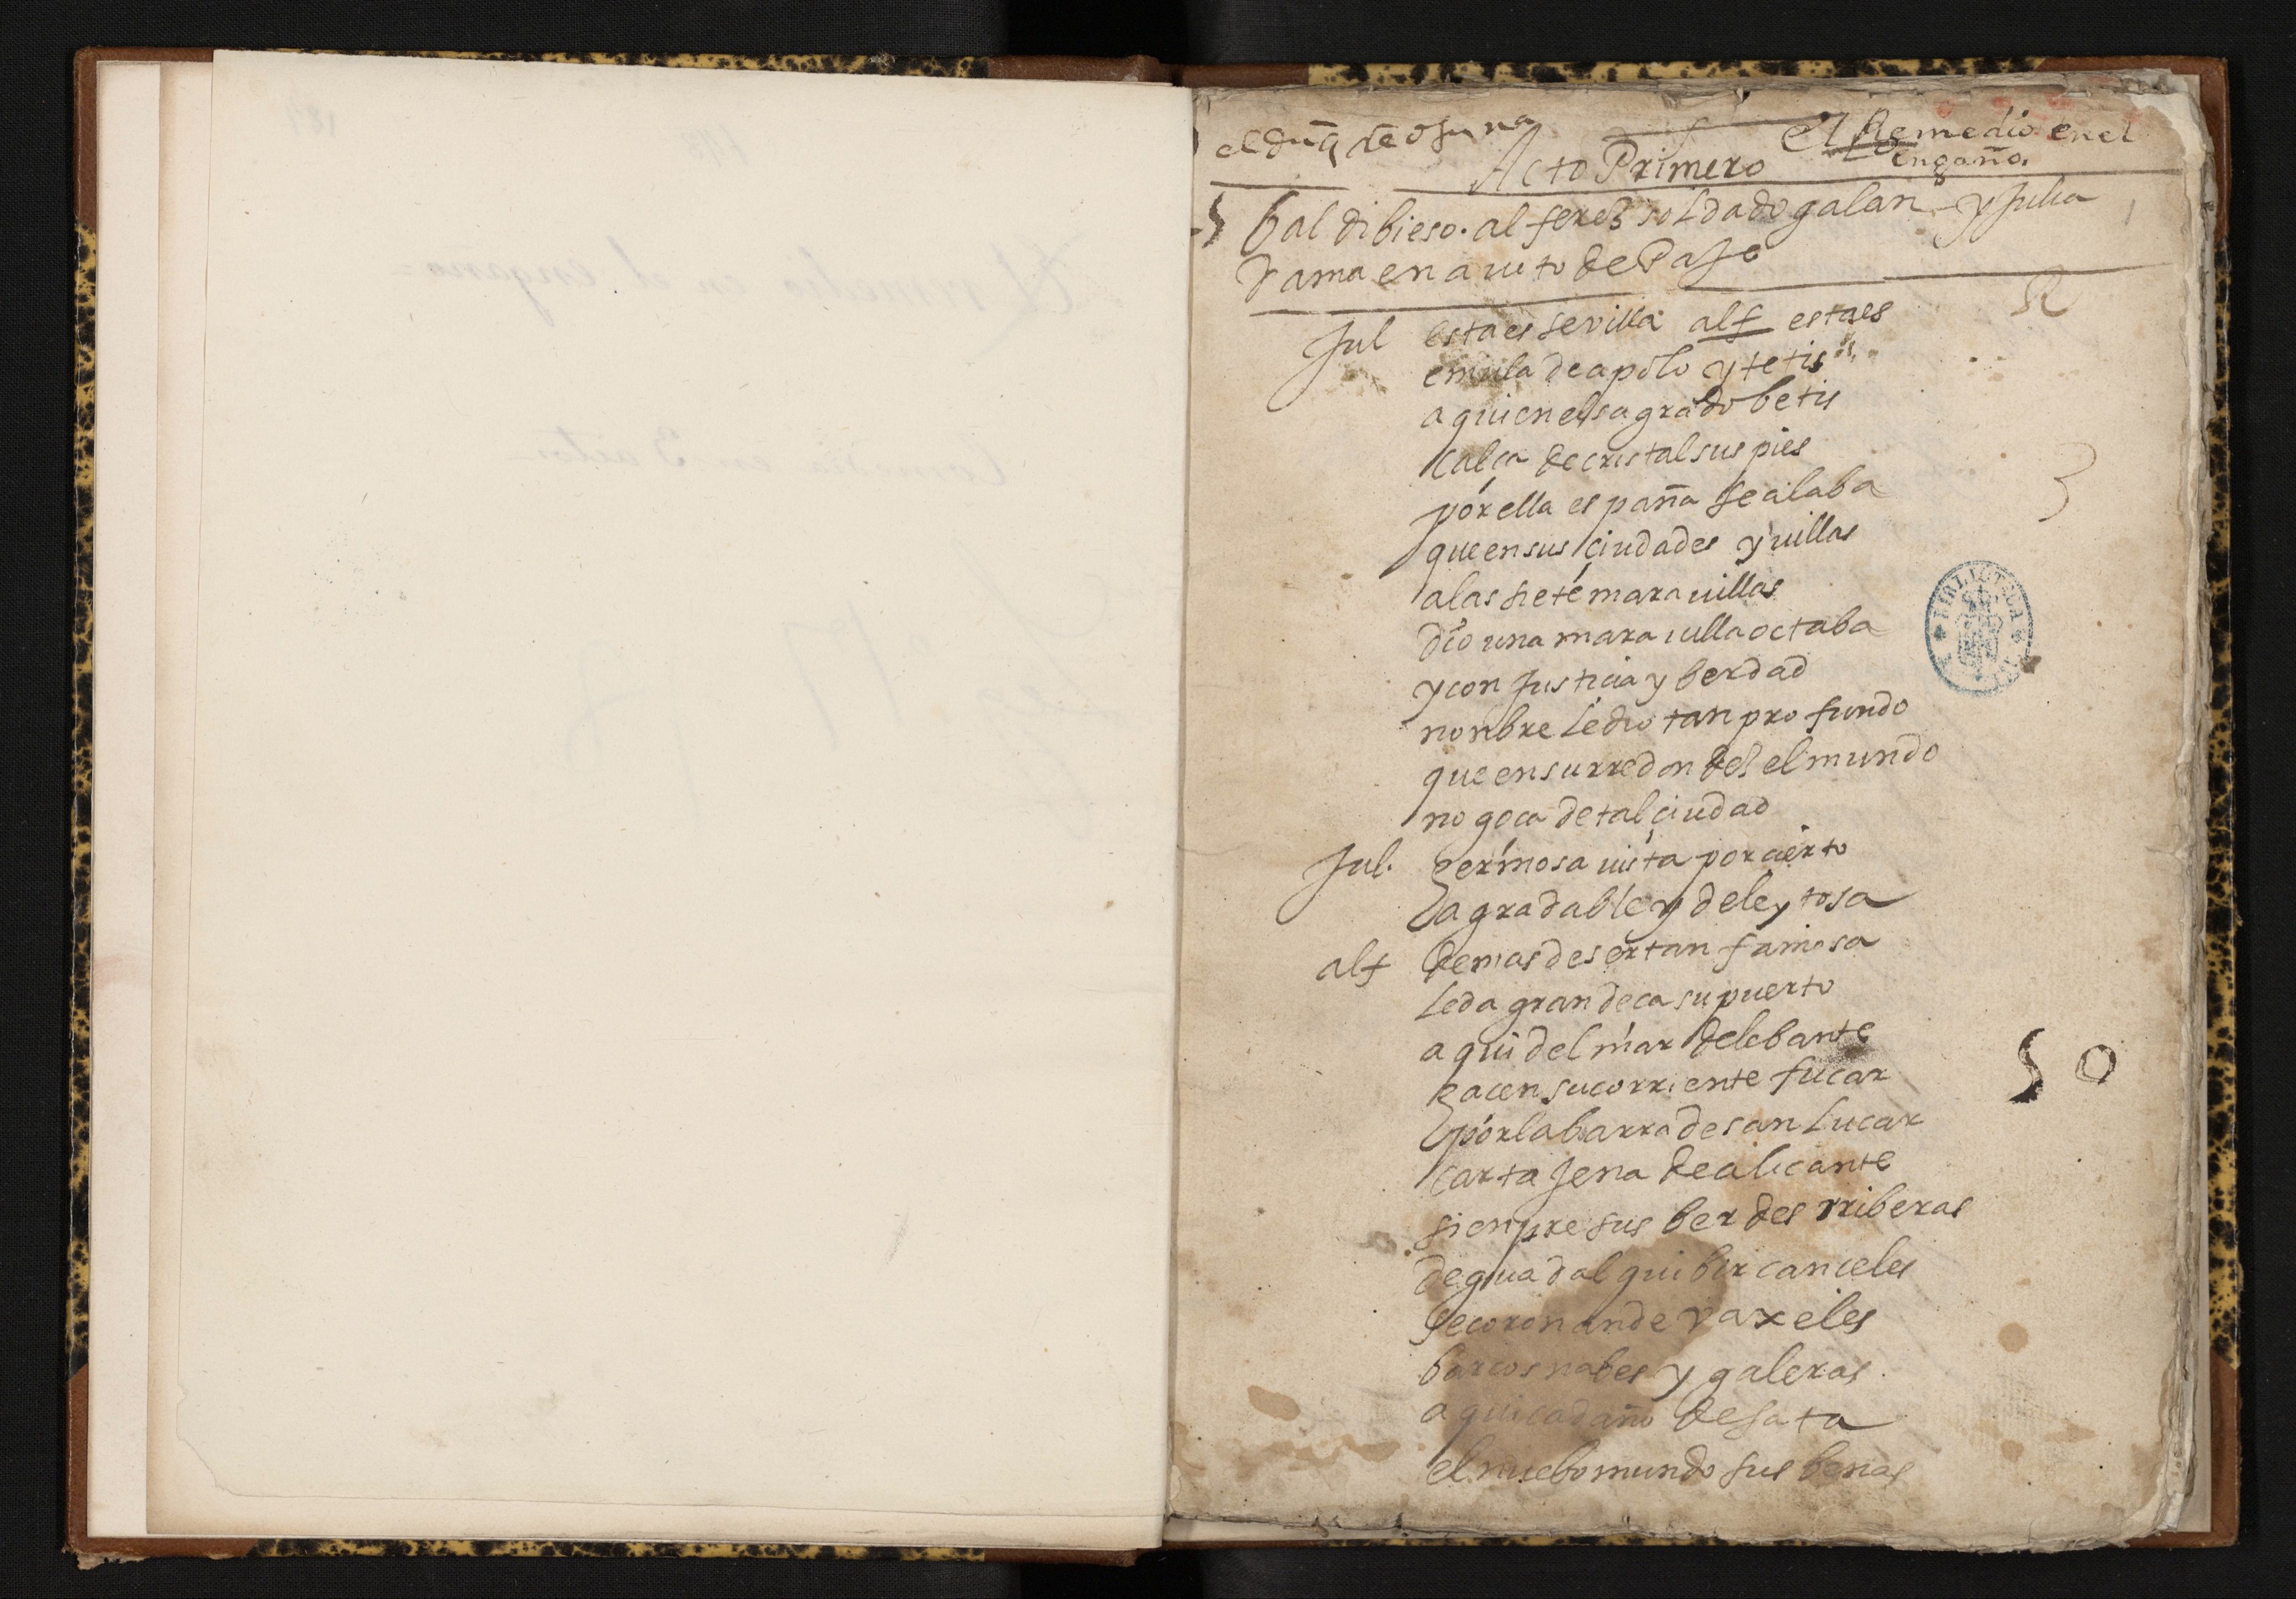 el duq de osuna
El Remedio en el
engaño.
Acto Primero
baldibieso. alferez soldado galan y Julia
dama en auito de Paje
Jul esta es sevilla alf esta es
emula de apolo y tetis
a quien el sagrado betis
calça de cristal sus pies
por ella españa se alaba
que en sus çiudades y uillas
a las siete marauillas
dio una marauilla octaba
y con Justicia y berdad
nonbre le dio tan profundo
que en su rredondez el mundo
no goça de tal çiudad
Jul. hermosa uista por cierto
agradable y deleytosa
alf demas de ser tan famosa
le da grandeça su puerto
aqui del mar de lebante
haçen su corriente fucar
por la barra de san Lucar
cartajena de alicante
sienpre sus berdes rriberas
de guadalquibir canceles
se coronan de vaxeles
barcos nabes y galeras.
aqui cadaño desata
el nuebo mundo sus benas
R
3
50
1
BIBLIOTECA
El remedio en el engaño
3 actos